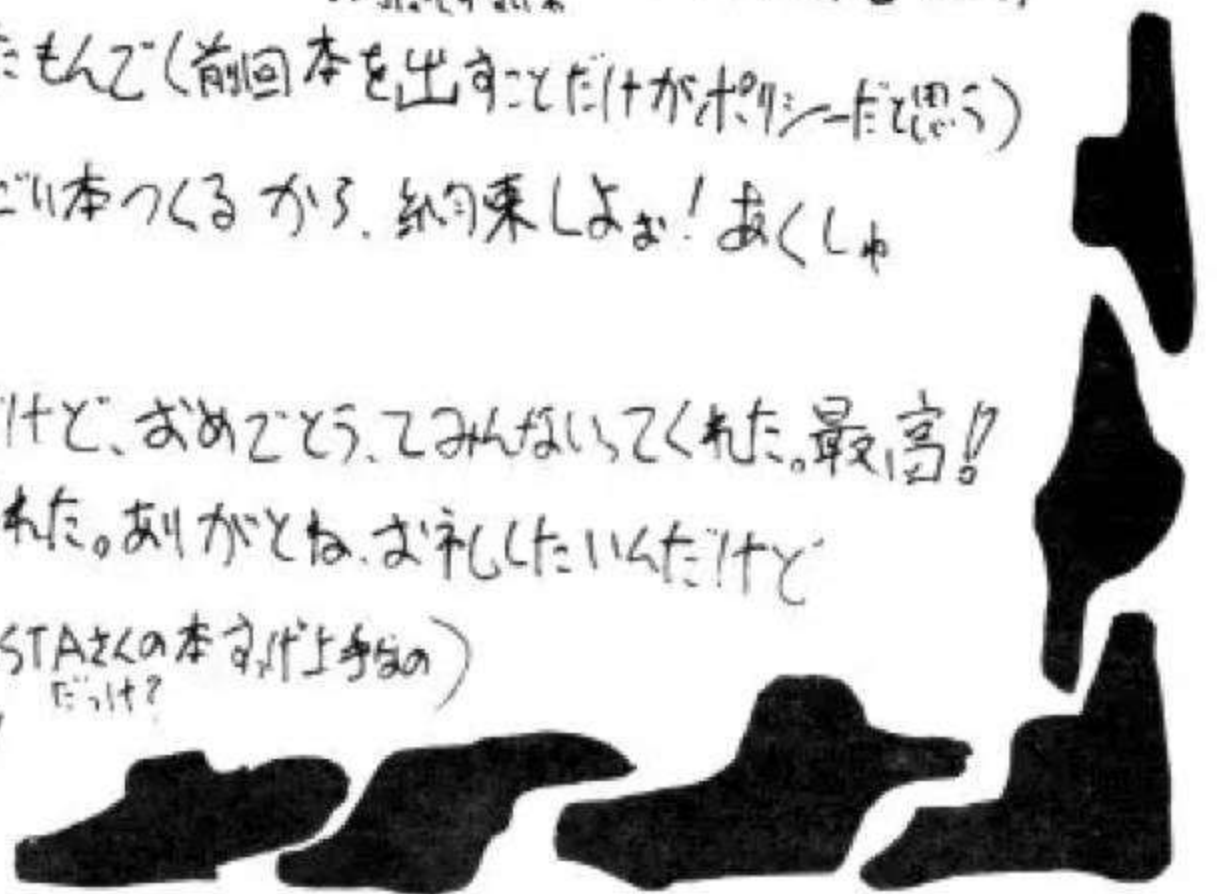 たもんで(前回本を出すことだけがポリシーだと思う)
ごい本つくるから、約束しよぉ!あくしゅ
けど、おめでとう、てみんないってくれた。最高!!
れた。ありがとね、お礼したいんだけど
STAさんの本すっげ上手なの)
だっけ?